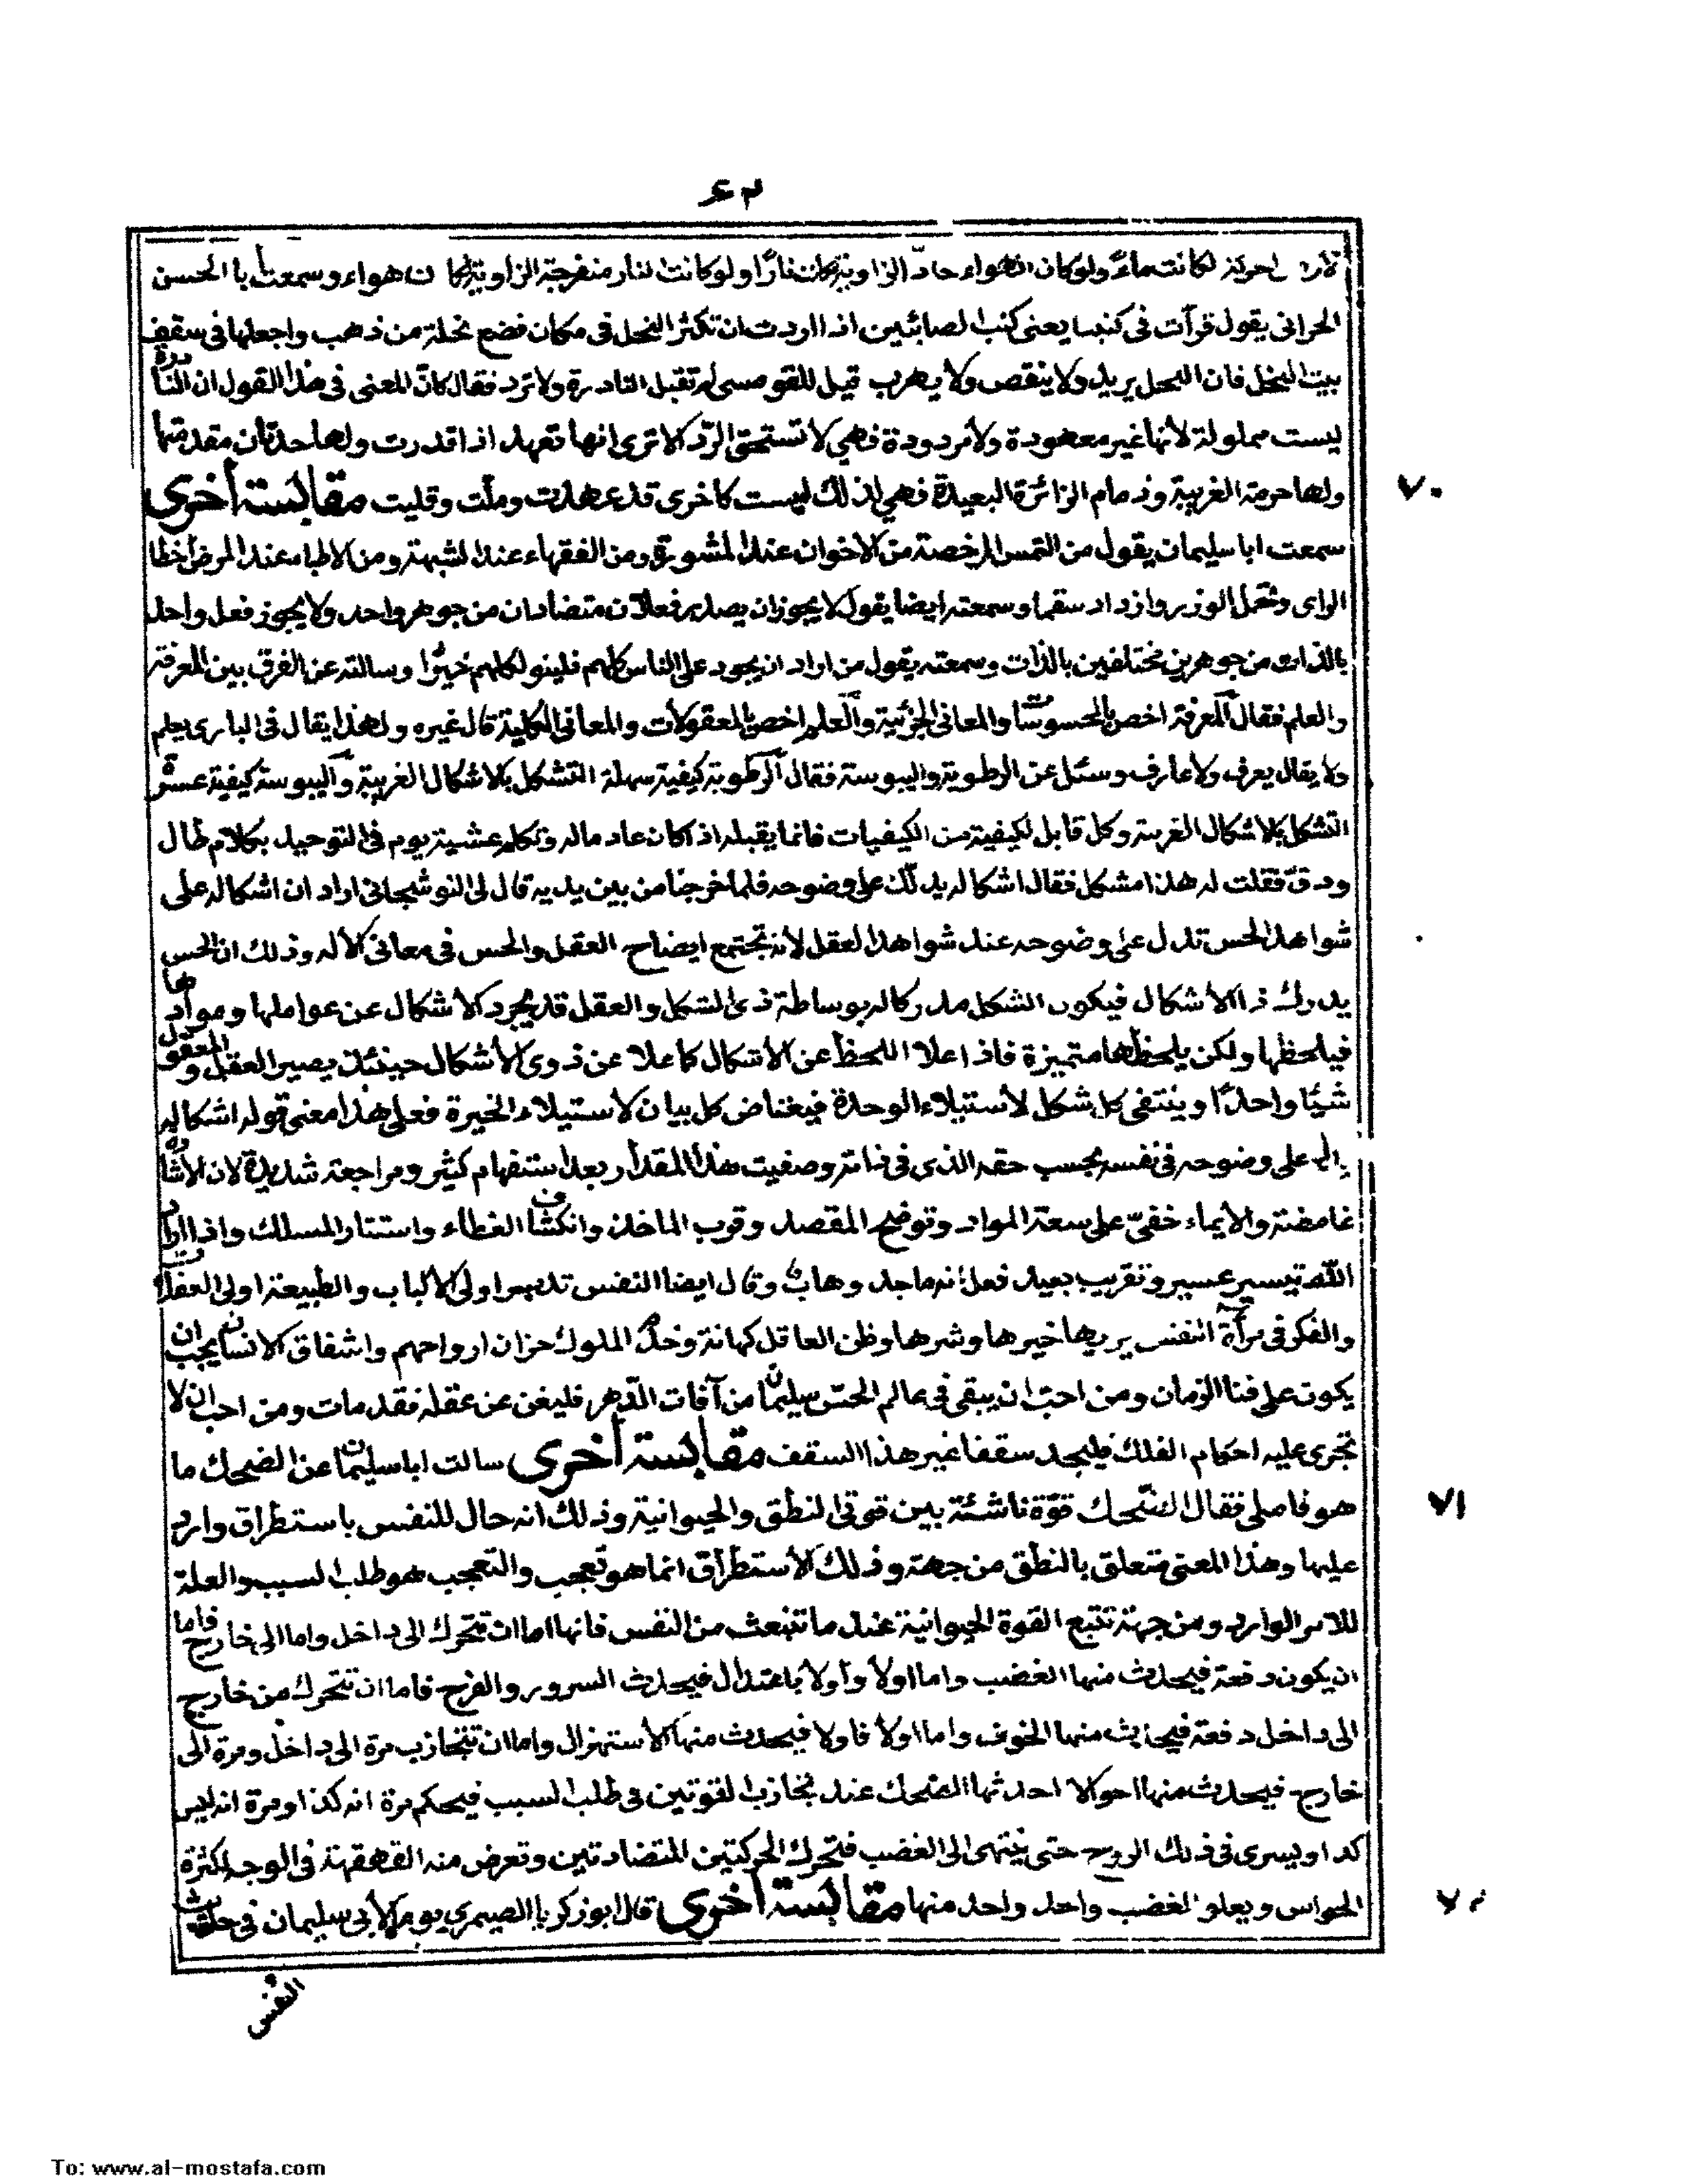 ٦٢
لكانت ماءً ولو كان الهواء حادّ الزاوية لكان نارًا ولو كانت النار منفرجة الزاوية لكانت هواء وسمعت أبا الحسن
الحراني يقول قرأت في كتبنا يعني كتب الصابئين اذا اردت ان تكثر النحل في مكان فضع نحلة من ذهب واجعلها في سقف
بيت النحل فان النحل يزيد ولا ينقص ولا يهرب قيل للقومسي لم تقبل النادرة ولا ترد فقال كانّ المعنى في هذا القول ان النادرة
ليست مملولة لأنها غير معهودة ولا مردودة فهي لا تستحق الرّد الا ترى انها تعهد اذا قدرت ولها حدتان مقدمتها
ولها حرمة الغريبة وذمام الزائرة البعيدة فهي لذلك ليست كاخرى قد عهدت وملّت وقليت مقابسة أخرى
٧٠
سمعت ابا سليمان يقول من التمس الرخصة من الاخوان عند المشورة ومن الفقهاء عند الشبهة ومن الاطباء عند المرض أخطا
الراى وتحمل الوزر وازداد سقما وسمعته ايضا يقول لا يجوز ان يصدر فعلان متضادان من جوهر واحد ولا يجوز فعل واحد
بالذات من جوهرين مختلفين بالذات وسمعته يقول من اراد ان يجود على الناس كلهم فلينو لكلهم خيرًا وسالته عن الفرق بين المعرفة
والعلم فقال المعرفة اخص بالمحسوسات والمعاني الجزئية والعلم اخص بالمعقولات والمعاني الكلية قال غيره ولهذا يقال في البارى يعلم
ولا يقال يعرف ولا عارف وسئل عن الرطوبة واليبوسة فقال الرطوبة كيفية سهلة التشكل بالاشكال الغريبة واليبوسة كيفية عسرة
التشكل بالاشكال الغريبة وكل قابل لكيفية من الكيفيات فانما يقبله اذا كان عادماله وتكلم عشية يوم في التوحيد بكلام طال
ودقّ فقلت له هذا مشكل فقال اشكاله يدلّك على وضوحه فلما خرجنا من بين يديه قال لى النوشجاني اراد ان اشكاله على
شواهد الحس تدل على وضوحه عند شواهد العقل لأنه تجتمع ايضاح العقل والحس في معاني الاله وذلك ان الحس
يدرك ذا الأشكال فيكون الشكل مدركا له بوساطة ذى الشكل والعقل قد يجرد الأشكال عن عواملها وموادها
فيلحظها ولكن يلحظها متميزة فاذا علا اللحظ عن الأشكال كما علا عن ذوى الأشكال حينئذ يصير العقل والمعقول
شيئا واحدًا وينتفى كل شكل لأستيلاء الوحدة فيغتاض كل بيان لأستيلاء الخيرة فعلى هذا معنى قوله اشكاله
على وضوحه في نفسه بحسب حقه الذى في ذاته وصفيت هذا المقدار بعد استفهام كثير ومراجعة شديدة لان الأشارة
غامضة والايماء خفىّ على سعة المواد وتوضح المقصد وقرب الماخذ وانكشاف الغطاء واستتار المسلك واذا اراد
الله تيسير عسير وتقريب بعيد فعل انه ماجد وهاب وقال ايضا النفس تدبير اولى الألباب والطبيعة اولى العقل
والفكر في مرآة النفس يريها خيرها وشرها وظن العاقل كهانة وخدم الملوك حزان ارواحهم واشفاق الانسان يجب ان
يكون على فنا الزمان ومن احبّ ان يبقى في عالم الحسّ سليمًا من آفات الدّهر فليغن عن عقله فقد مات ومن احب ان لا
تجرى عليه احكام الفلك فليجد سقفا غير هذا السقف مقابسة أخرى سالت ابا سليمان عن الضحك ما
هو فاملى فقال الضّحك قوّة ناشئة بين قوتى النطق والحيوانية وذلك انه حال للنفس باستطراق وارد
٧١
عليها وهذا المعنى متعلق بالنطق من جهة وذلك الأستطراق انما هو تعجب والتعجب هو طلب السبب والعلة
للامر الوارد ومن جهة تتبع القوة الحيوانية عند ما تنبعث من النفس فانها اما ان تتحرك الى داخل واما الى خارج فاما
ان يكون دفعة فيحدث منها الغضب واما اولا وأولا باعتدال فيحدث السرور والفرح فاما ان تتحرك من خارج
الى داخل دفعة فيحدث منها الخوف واما اولا فاولا فيحدث منها الأستهزال واما ان تتجاذب مرة الى داخل ومرة الى
خارج فيحدث منها احوالا احدثها الضحك عند تجاذب القوتين في طلب السبب فيحكم مرة انه كذا ومرة انه ليس
كذا ويسرى في ذلك الروح حتى ينتهى الى الغضب فتحرك الحركتين المتضادتين وتعرض منه القهقهة في الوجه لكثرة
الحواس ويعلو الغضب واحد واحد منها مقابسة أخرى قال ابو زكريا الصيمري يوما لأبى سليمان في حديث
النفس
To: www.al-mostafa.com